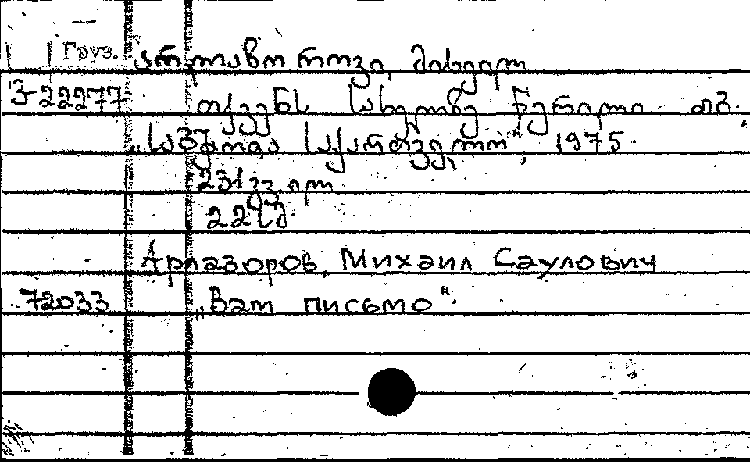 Груз. არლაზოროვი, მიხეილ
3-22277 თქვენს სახელზე წერილი. თბ.,
„საბჭოთა საქართველო", 1975.
231 გვ. ილ.
22 სმ.
Арлазоров, Михаил Саулович
72033 „Вам письмо".